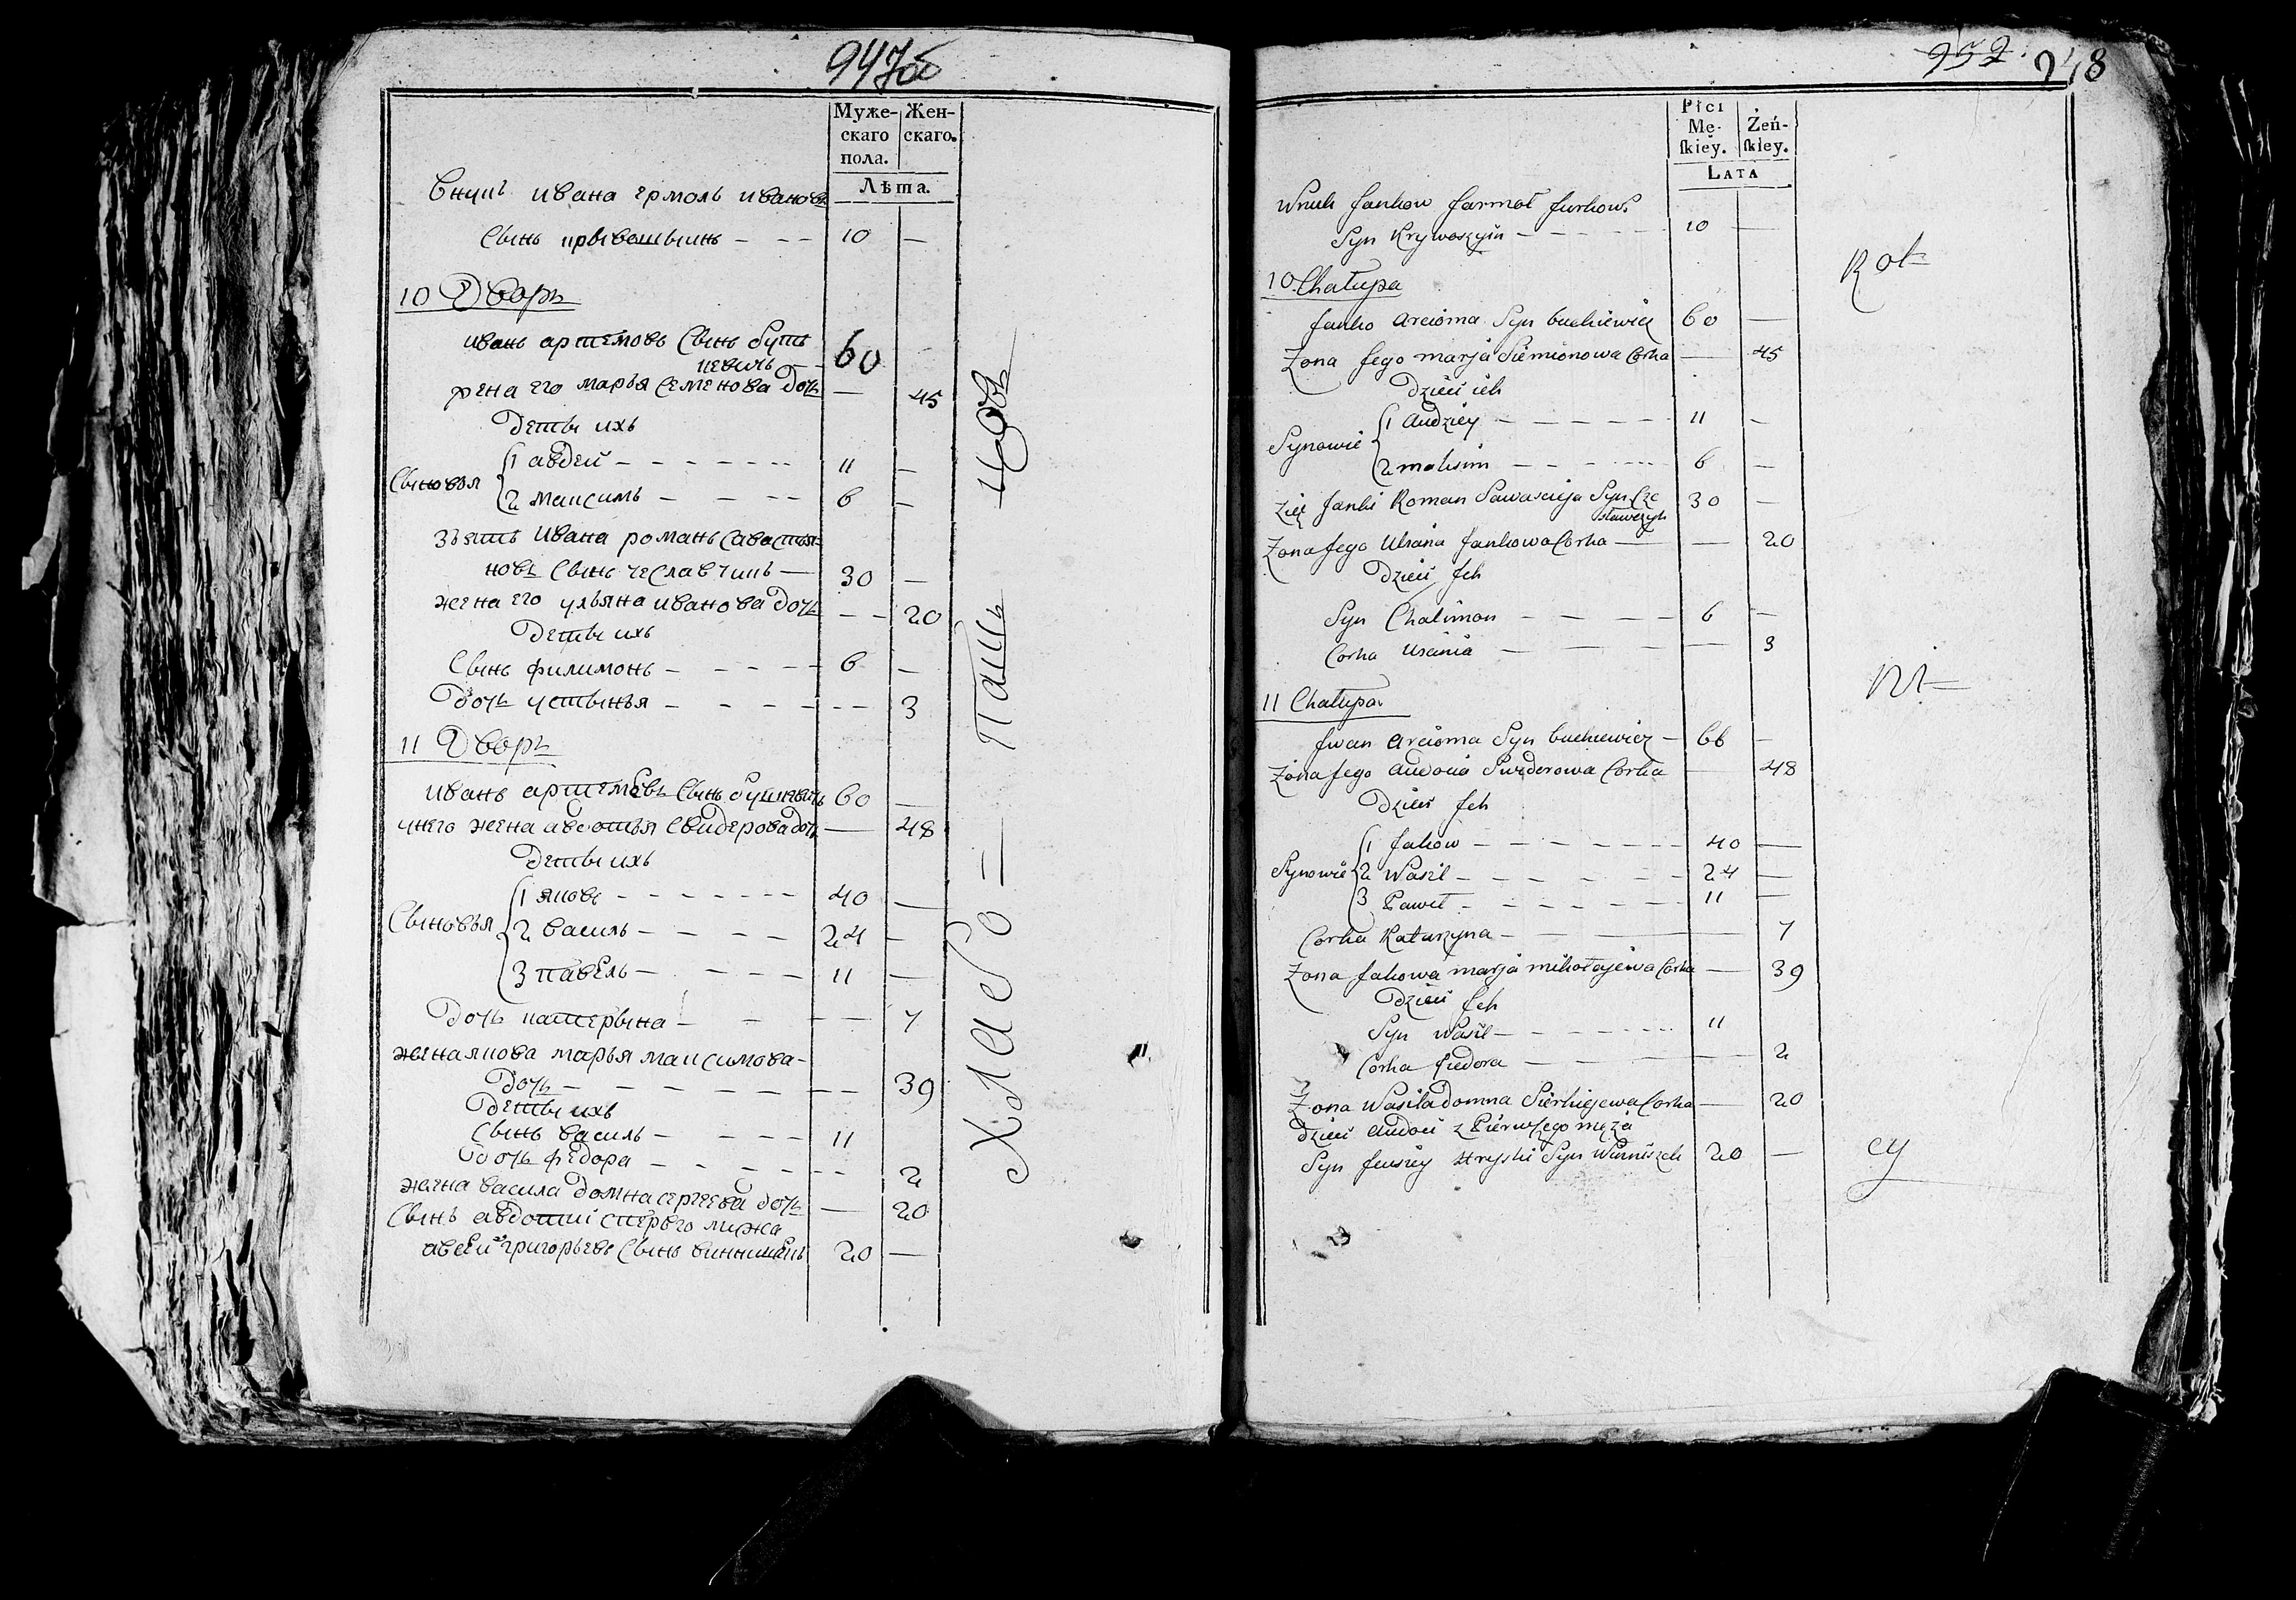 947об
Муже- Жен-
скаго скаго.
пола.
Лѣта.
Внукъ ивана ермолъ ивановъ
Сынъ крывошынъ - - - 10 —
10 Дворъ
иванъ артемовъ Сынъ буть
кевичь — 60
жена его марья семенова дочь — 45
Деты ихъ
Сыновья 1 авдей - - - - - - 11 —
2 максимъ - - - - 6 —
Зъять ивана романъ Савостья-
новъ Сынъ чеславчикъ — 30 —
жена его ульяна иванова дочь - - 20
Деты ихъ
Сынъ филимонъ - - - - - 6 —
дочь устынья - - - - - - - 3
11 Дворъ
иванъ артемовъ Сынъ буткевичь 60 —
унего жена авдотья Свидерова дочь — 48
Деты ихъ
Сыновья 1 яковъ - - - - - - - 40 —
2 василь - - - - 24 —
3 павелъ - - - - 11 —
Дочь катерына - - - - 7
жена якова марья максимова-
дочь - - - - - - - 39
Деты ихъ
Сынъ василь - - - - 11
дочь федора - - - - - - 2
жена васила домна сергеева дочь — 20
Сынъ авдотьи сперъго мужа
авсей григорьевъ Сынъ 20 —
Хлѣбо =
952. 948
Płci
Mę- Żeń-
ſkiey. ſkiey.
LATA
Wnuk Jankow Jarmoł Jurkow.
Syn Krywoszyin - - - - - 10 —
Rot
10 Chałupa
Janko Arcioma Syn butkiewicz 60 —
Zona Jego marja Siemionowa Corka — 45
Dzieci ich
Synowie 1 Audziey - - - - - - 11 -
2 maksim - - - - - - 6 —
Zięć Janki Roman Sawasciеja Syn Cze
sławczyk 30 —
Zona Jego Ulana Jankowa Corka — — 20
Dzieci Jch
Syn Chalimon - - - - 6 —
Corka Uscinia - - - — 3
11 Chałupa
Jwan Arcioma Syn butkiewicz - 66 —
Zona Jego Audocia Swiderowa Corka — 48
Dzieci Jch
Synowie 1 Jakow - - - - - - - 40 —
2 Wasil - - - - - - 24 —
3 Paweł - - - - - - 11 —
Corka Katarzyna - - — 7
Zona Jakowa marja mikołajewa Corka — 39
Dzieci Jch
Syn Wasil - - - - - - 11
Corka Fiedora - - - - - 2
Zona Wasila domna Sierhiejewa Corka — 20
Dzieci Audoci z Pierwſzego męża
Syn 20 —